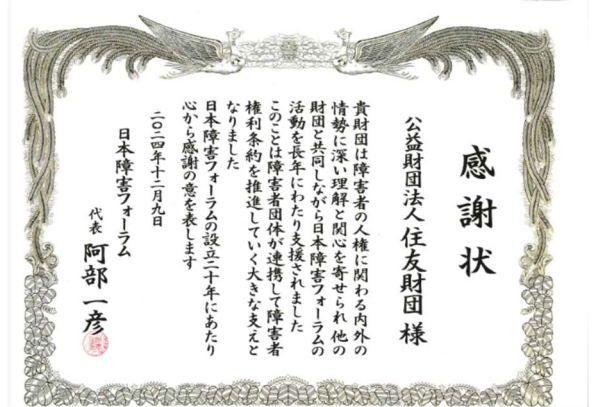 感謝状
公益財団法人 住友財団 様
貴財団は障害者の人権に関わる内外の
情勢に深い理解と関心を寄せられ他の
財団と共同しながら日本障害フォーラムの
活動を長年にわたり支援されました
このことは障害者団体が連携して障害者
権利条約を推進していく大きな支えと
なりました
日本障害フォーラムの設立二十年にあたり
心から感謝の意を表します
二〇二四年十二月九日
日本障害フォーラム
代表 阿部一彦